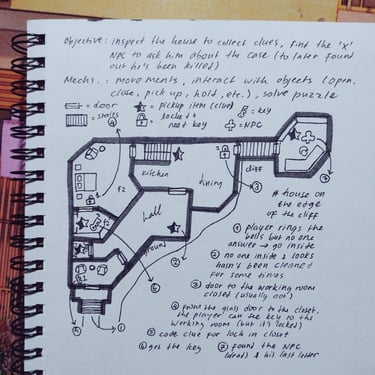 Objective: inspect the house to collect clues, find the 'x'
NPC to ask him about the case (to later found
out he's been killed)
Mechs.: movements, interact with objects (open,
close, pick up, hold, etc.), solve puzzle
= door
= pickup item (clue)
= key
= stairs
= locked &
need key
= NPC
4
2
kitchen
cliff
dining
3
7
f2
Hall
# house on
the edge
of the cliff
ground
2
6
5
1
① player rings the
bells but no one
answer → go inside
② no one inside & looks
hasn't been cleaned
for some times
③ door to the working room
closed (usually not)
④ from the glass door to the closet,
the player can see key to the
working room (but it's locked)
⑤ code clue for lock in closet
⑥ get the key
⑦ found the NPC
(dead) & his last letter